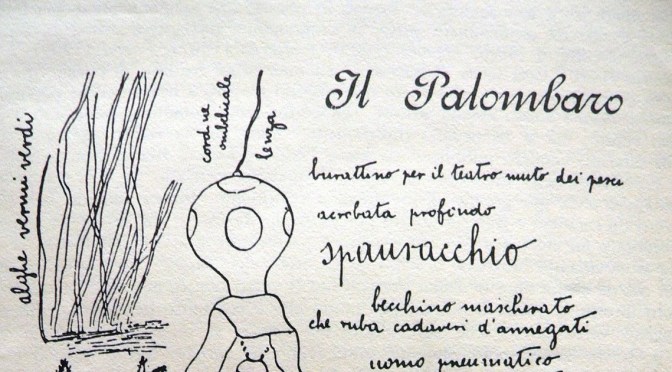 Il Palombaro
alghe vermi verdi
cordone
ombelicale
lenza
burattino per il teatro muto dei pesci
acrobata profondo
spauracchio
becchino mascherato
che ruba cadaveri d'annegati
uomo pneumatico